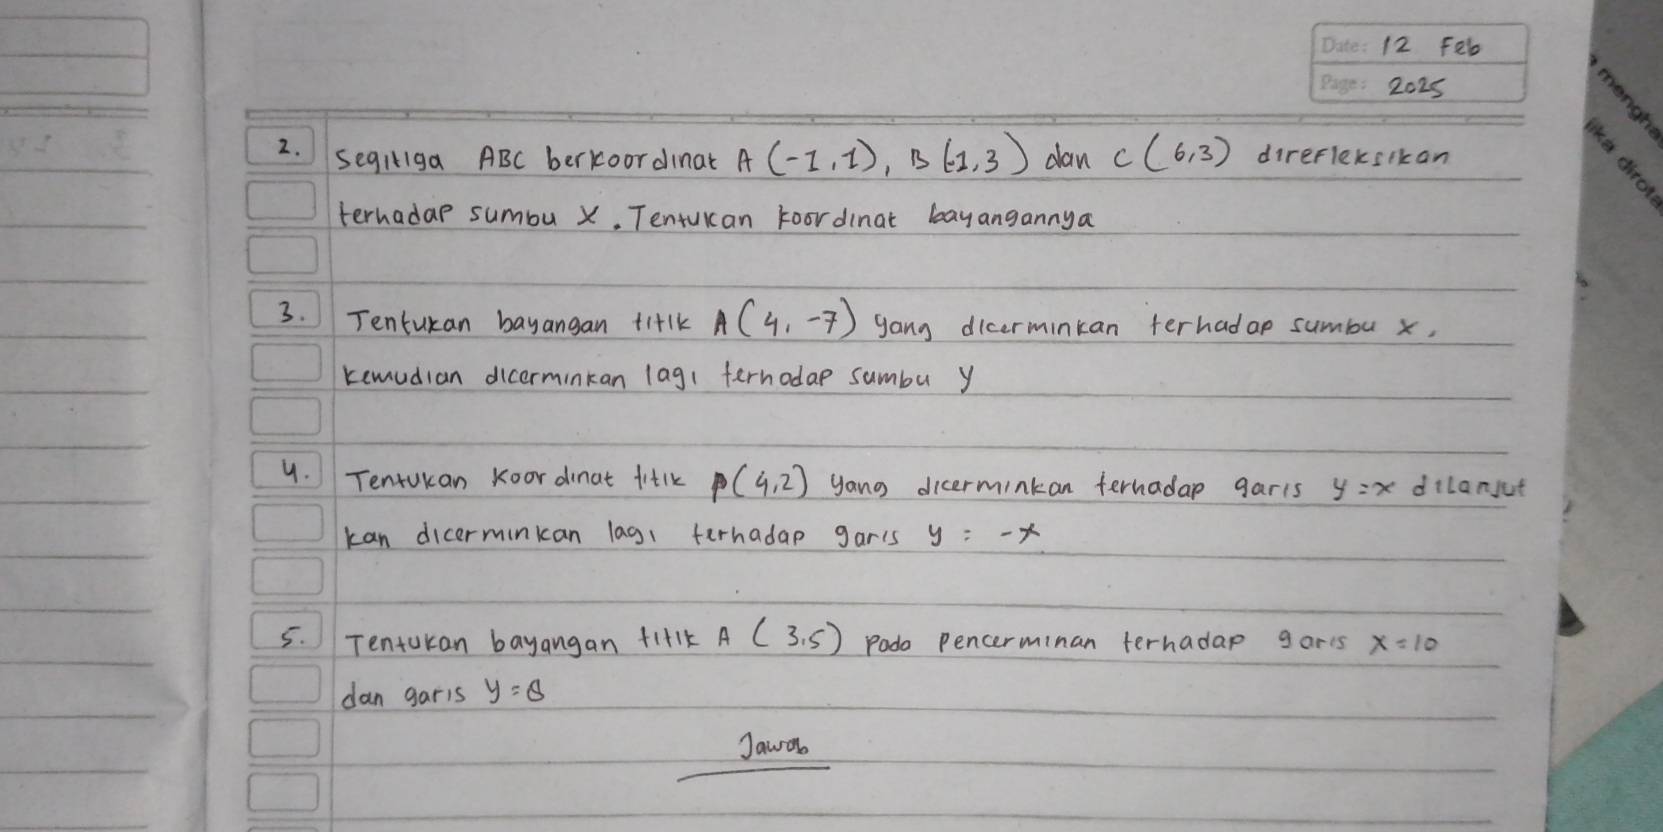 Date: 12 Feb
Page: 2025
2. Segitiga ABC berkoordinat A (-1,1), B (-1,3) dan C (6,3) direfleksikan
terhadap sumbu X. Tentukan koordinat bayangannya
3. Tentukan bayangan titik A (4,-7) yang dicerminkan terhadap sumbu x,
kemudian dicerminkan lagi terhadap sumbu y
4. Tentukan koordinat titik P(4,2) yang dicerminkan terhadap garis y=x dilanjut
kan dicerminkan lagi terhadap garis y = -x
5. Tentukan bayangan titik A (3,5) pada pencerminan terhadap garis x=10
dan garis y=8
Jawab
mengha
jika dirota